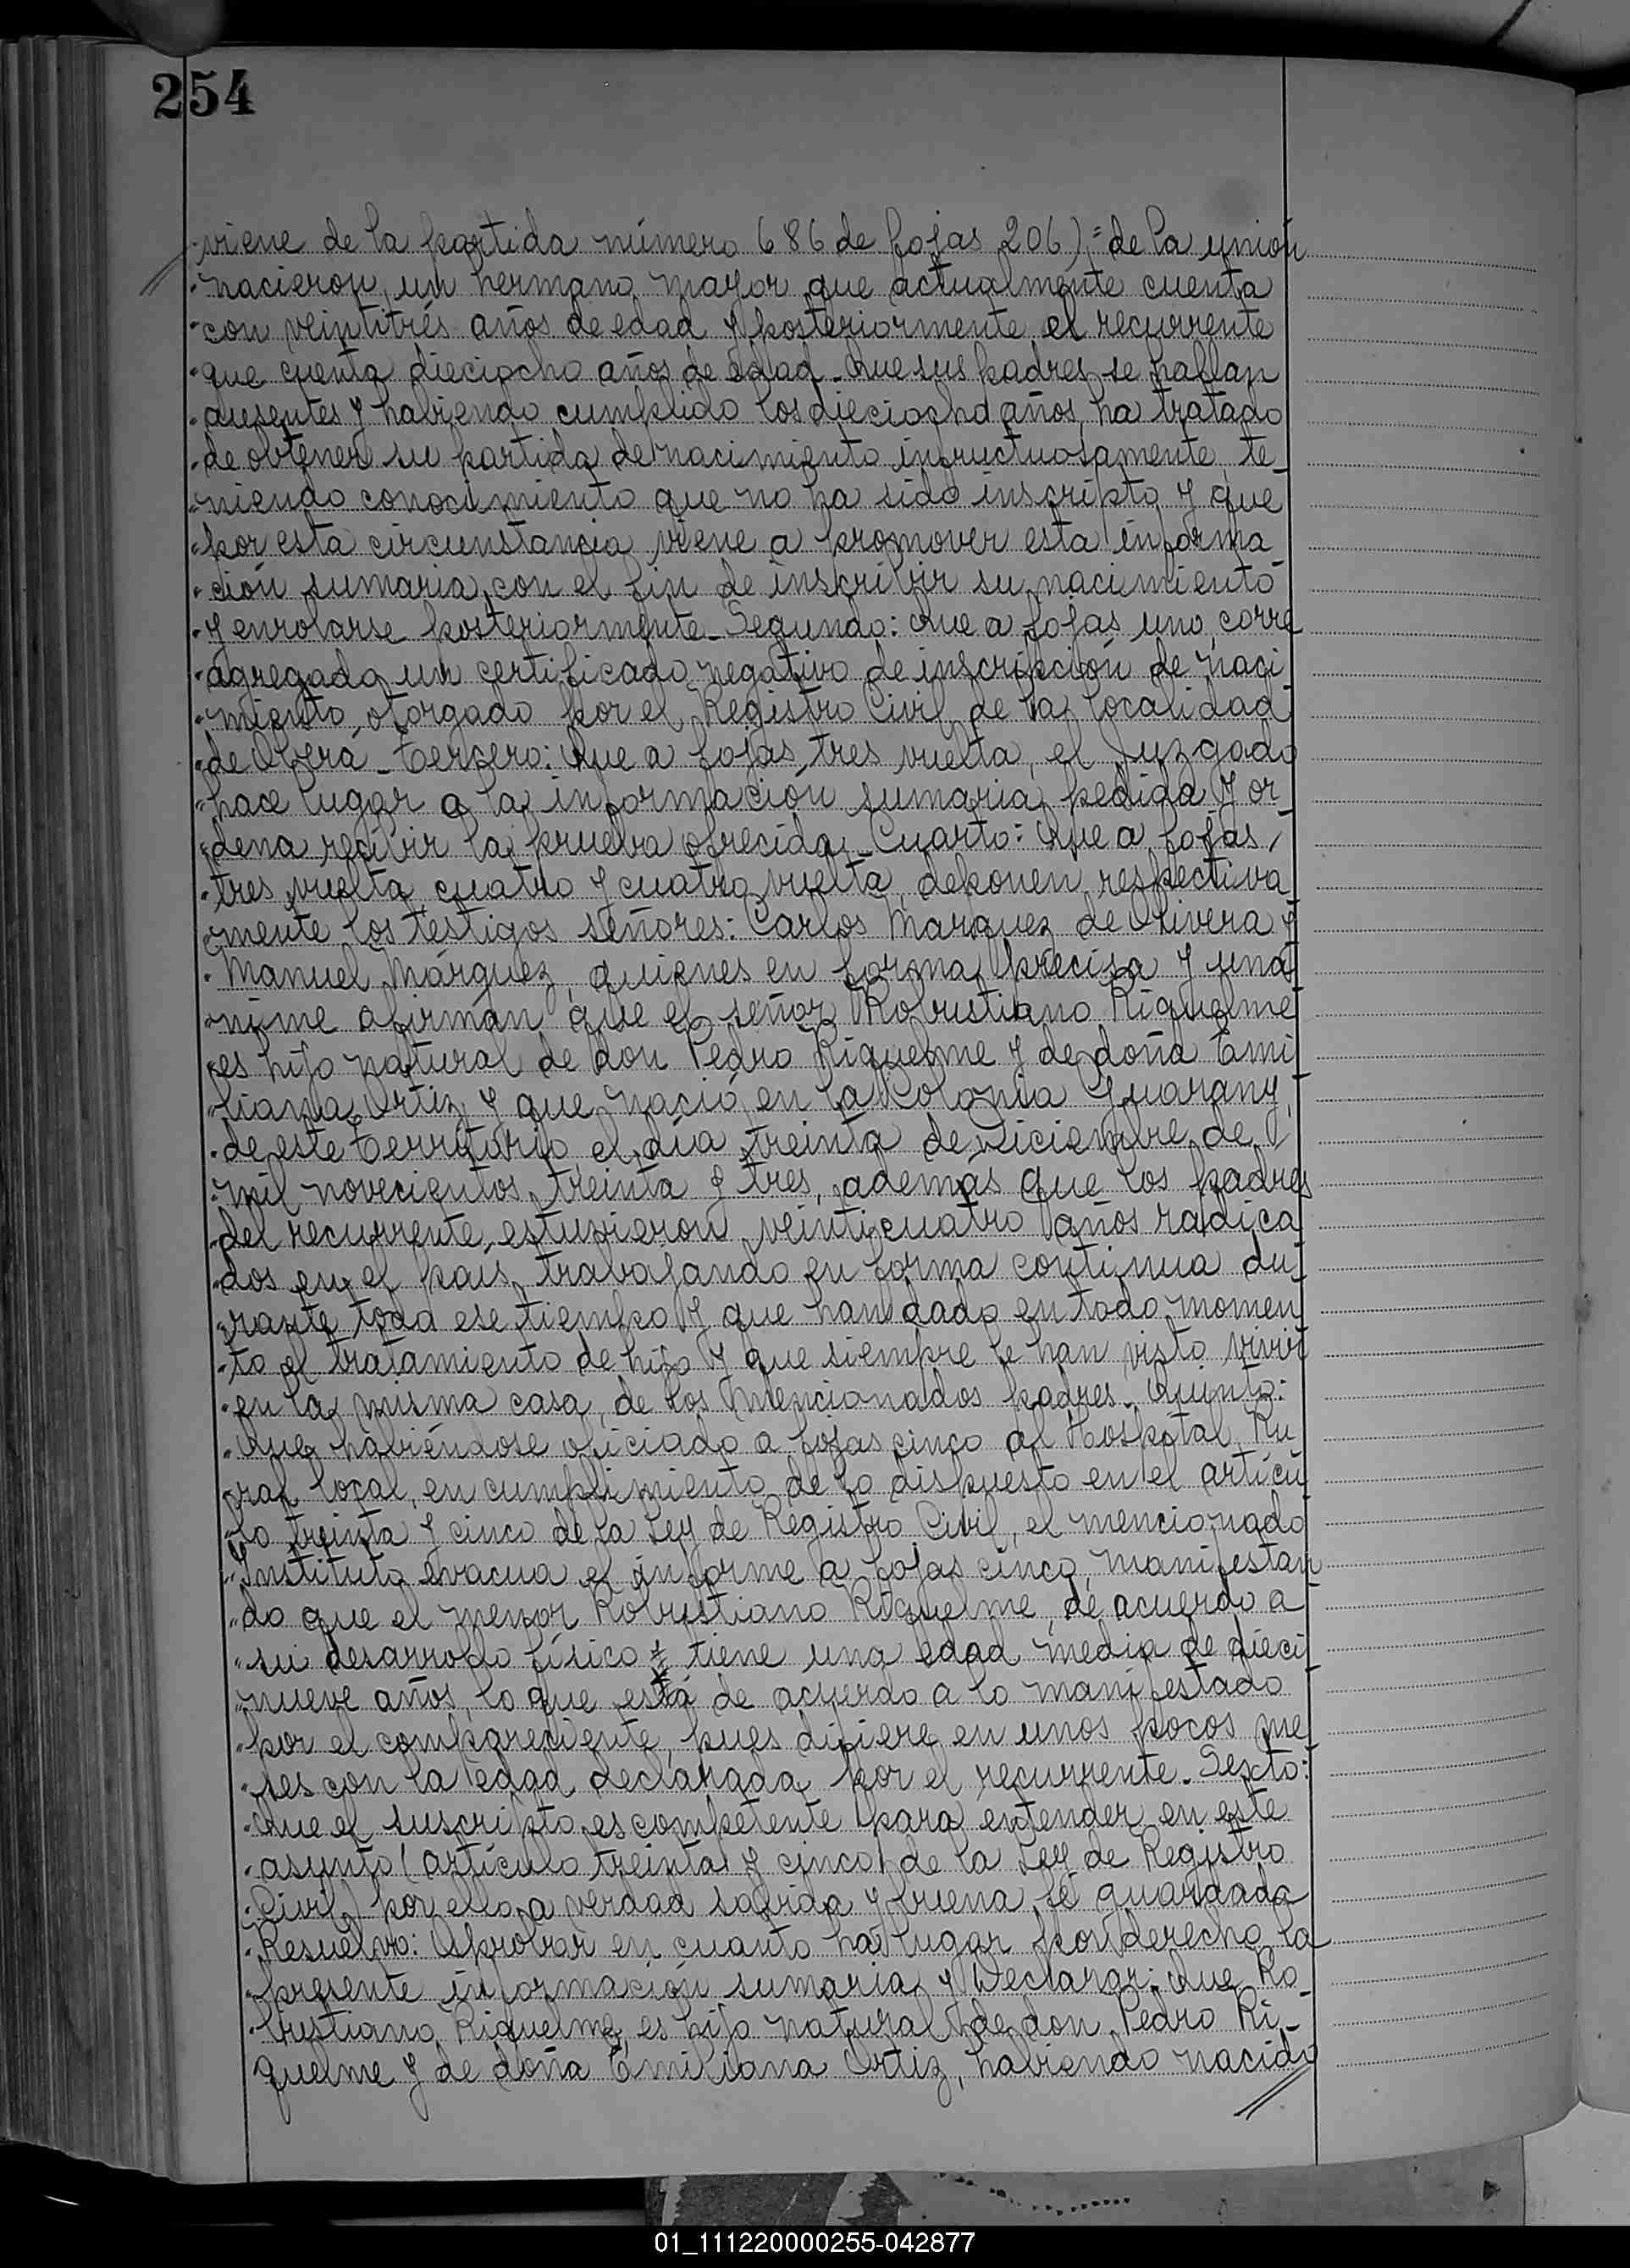 254
viene de la partida número 686 de fojas 206) = de la unión
nacieron, un hermano mayor que actualmente cuenta
con veintitrés años de edad y posteriormente el recurrente
que cuenta dieciocho años de edad. Que sus padres se hallan
ausentes y habiendo cumplido los dieciocho años, ha tratado
de obtener su partida de nacimiento infructuosamente, te_
niendo conocimiento que no ha sido inscripto y que
por esta circunstancia viene a promover esta informa_
ción sumaria, con el fin de inscribir su nacimiento
y enrolarse posteriormente_Segundo: Que a fojas uno, corre
agregado un certificado negativo de inscripción de naci
miento, otorgado por el Registro Civil de la localidad
de Oberá_Tercero: Que a fojas tres vuelta, el Juzgado
hace lugar a la información sumaria pedida y or_
dena recibir la prueba ofrecida_Cuarto: Que a fojas,
tres vuelta, cuatro y cuatro vuelta, deponen respectiva
mente los testigos señores: Carlos Marquez de Olivera y
Manuel Márquez, quienes en forma precisa y uná
nime afirmán que el señor Robustiano Riquelme
es hijo natural de don Pedro Riquelme y de doña Emi
liana Ortiz y que nació en la Colonia Guarany,
de este Territorio, el día treinta de Diciembre de
mil novecientos treinta y tres, además que los padres
del recurrente, estuvieron veinticuatro años radica
dos en el pais, trabajando en forma continua du_
rante todo ese tiempo y que han dado en todo momen
to el tratamiento de hijo y que siempre le han visto vivir
en la misma casa, de los mencionados padres_Quinto:
Que habiéndose oficiado a fojas cinco al Hospital Ru
ral local, en cumplimiento de lo dispuesto en el artícu
lo treinta y cinco de la Ley de Registro Civil, el mencionado
Instituto evacua el informe a fojas cinco, manifestan
do que el menor Robustiano Riquelme, de acuerdo a
su desarrollo físico tiene una edad media de dieci
nueve años, lo que está de acuerdo a lo manifestado
por el compareciente, pues difiere en unos pocos me
ses con la edad declarada por el recurrente_Sexto:
Que el suscripto es competente para entender en este
asunto (artículo treinta y cinco de la Ley de Registro
Civil) por ello, a verdad sabida y buena fé guardada
Resuelvo: Aprobar en cuanto ha lugar por derecho la
presente información sumaria y Declarar: Que Ro_
bustiano Riquelme es hijo natural de don Pedro Ri_
quelme y de doña Emiliana Ortiz, habiendo nacido
01_111220000255-042877